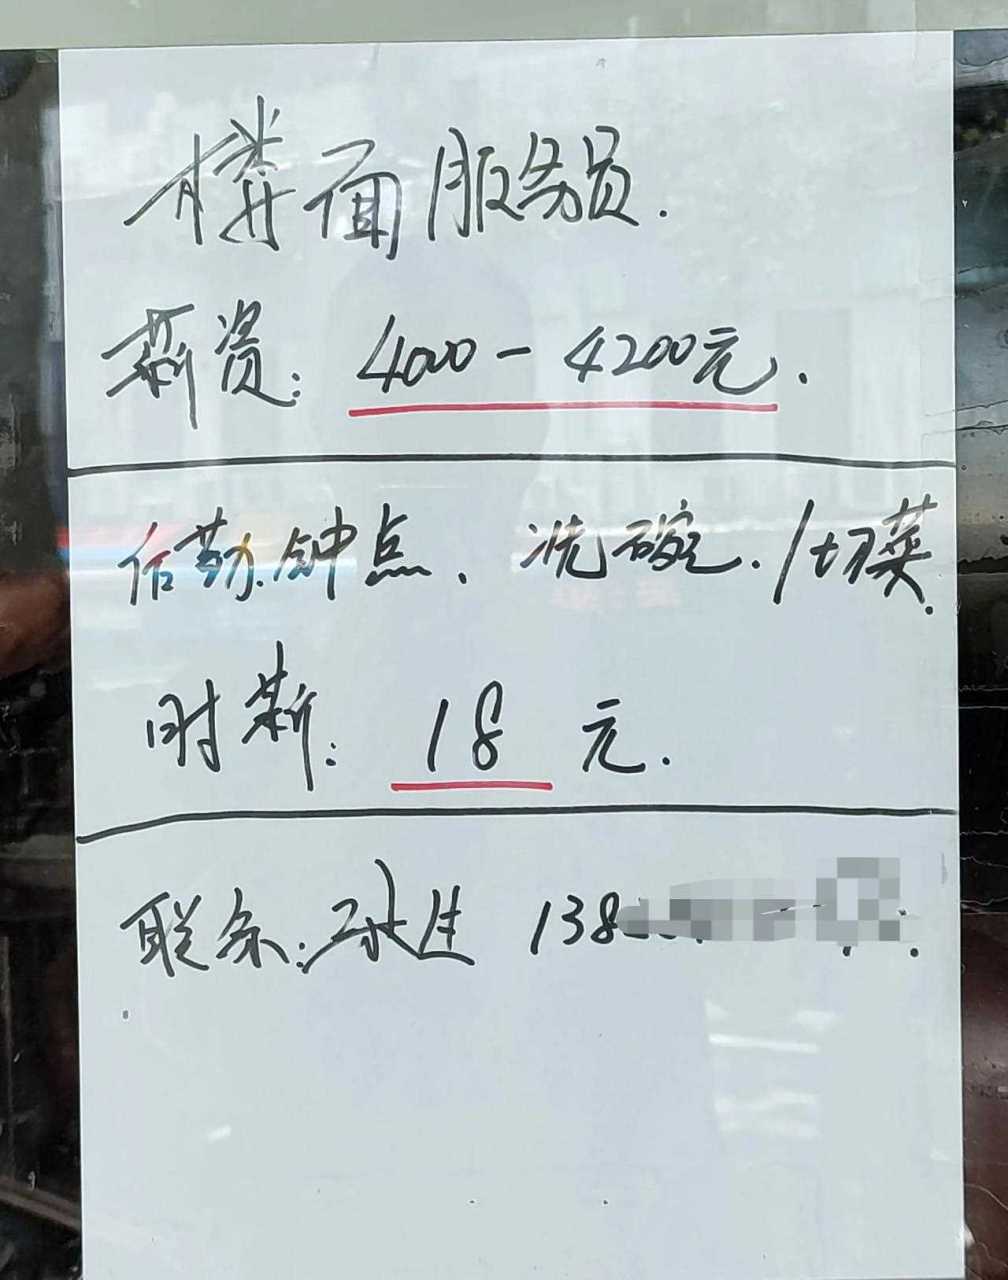 楼面服务员.
薪资: 4000-4200元.
后勤.钟点、洗碗./切菜.
时薪: 18元.
联系: 孙生 138